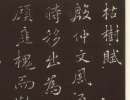 枯樹賦
殷仲文風流
時移出為東
顧庭槐而嘆